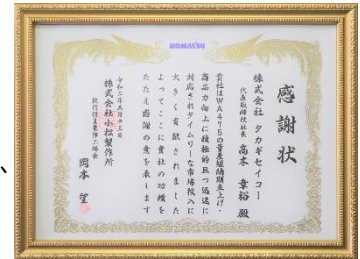 KOMATSU
感謝状
株式会社 タカギセイコー
代表取締役社長 高木 章裕 殿
貴社はWA475の量産短納期立上げ・
商品力向上に積極的且つ迅速に
対応されタイムリーな市場投入に
大きく貢献されました
よってここに貴社の功績を
たたえ感謝の意を表します
令和三年五月十三日
株式会社小松製作所
執行役員粟津工場長
岡本 望
、